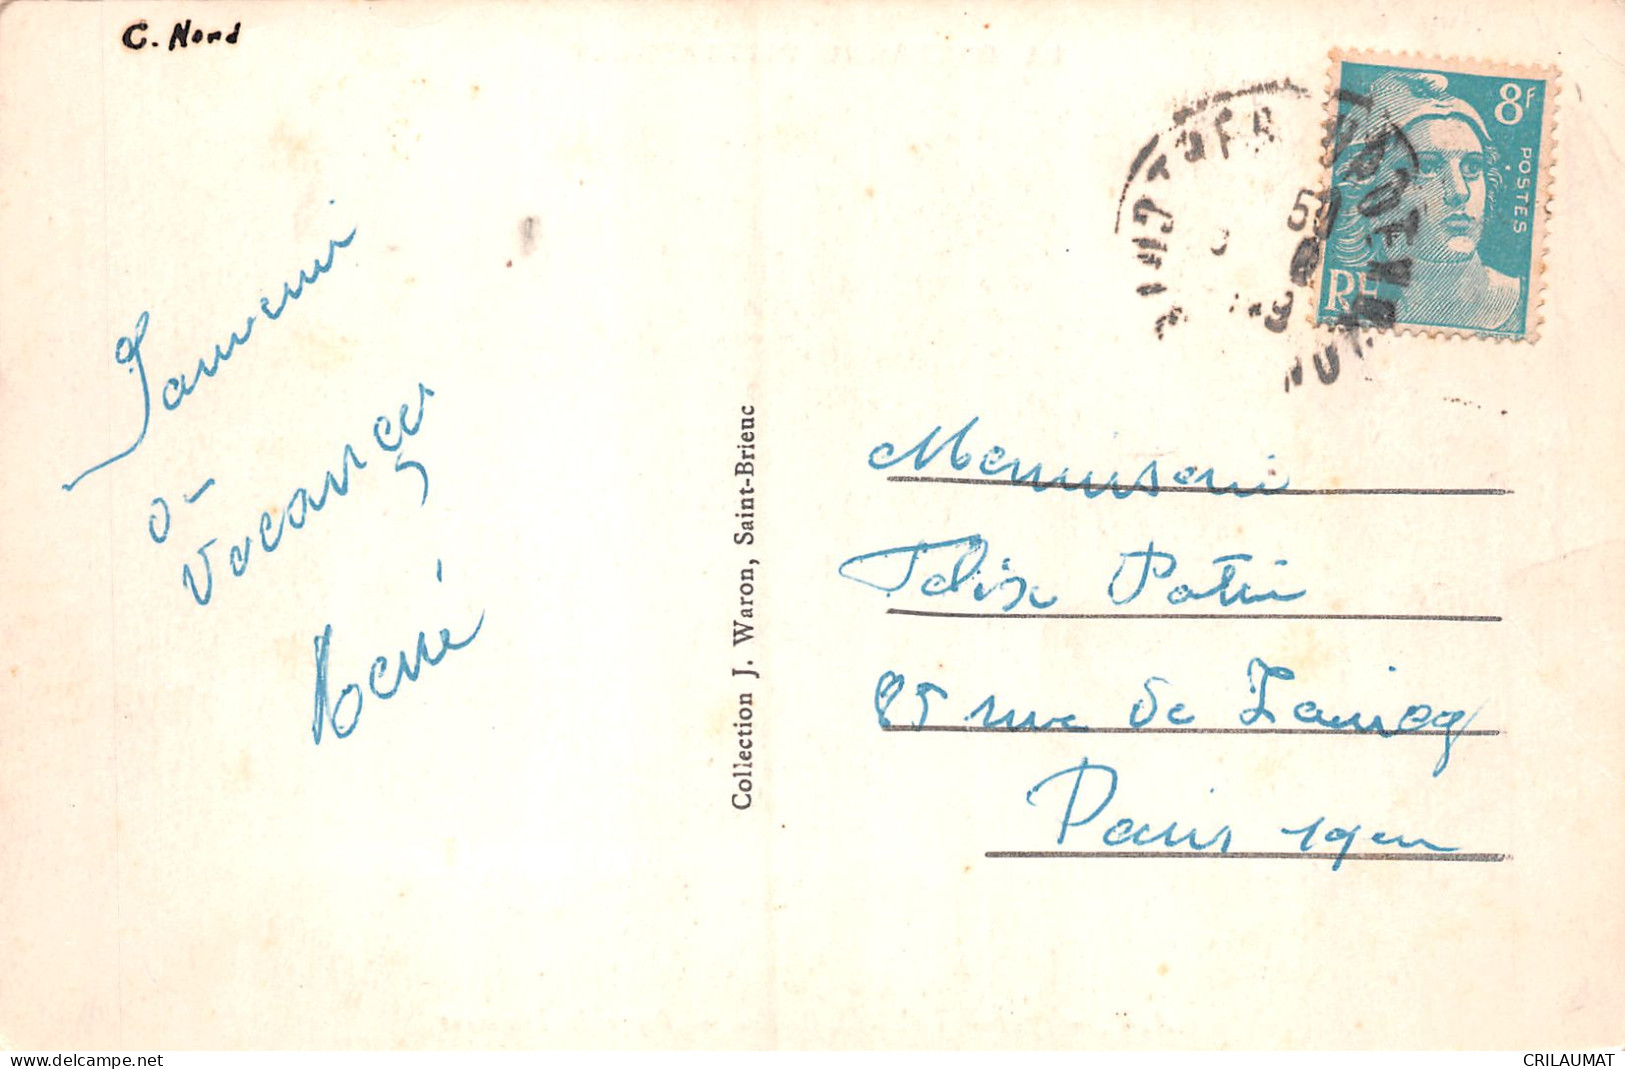 C. Nord
8F
POSTES
RF
Souvenir
de
Vacances
René
Collection J. Waron, Saint-Brieuc
Menuiserie
Félix Potin
85 rue de
Paris 19em
www.delcampe.net
CRILAUMAT